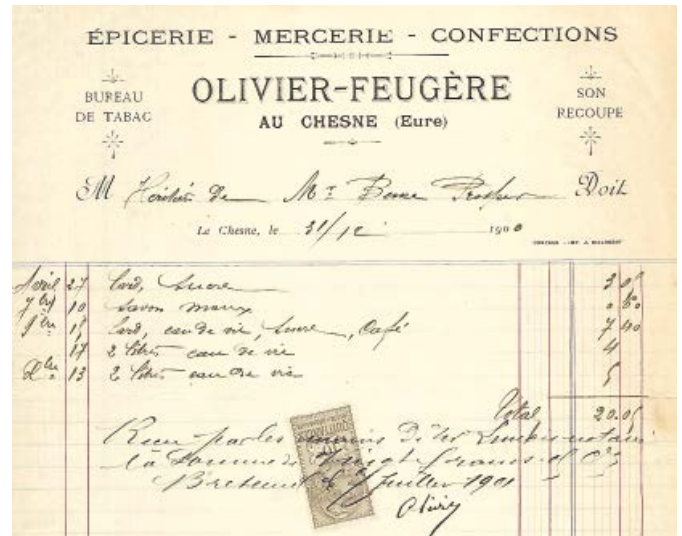 ÉPICERIE - MERCERIE - CONFECTIONS
BUREAU DE TABAC
OLIVIER-FEUGÈRE
AU CHESNE (Eure)
SON RECOUPE
M Héritiers de Mr Prosper Doit
Le Chesne, le 31/12 1900
Avril 27 lard, Sucre 3 05
7bre 10 Savon 0 60
9bre 15 lard, eau de vie, Sucre, Café 7 40
17 2 litres eau de vie 4
Dbre 13 2 litres eau de vie 5
Total 20.05
Reçu par les mains de notaire
la Somme de Vingt francs
Breteuil le Juillet 1901